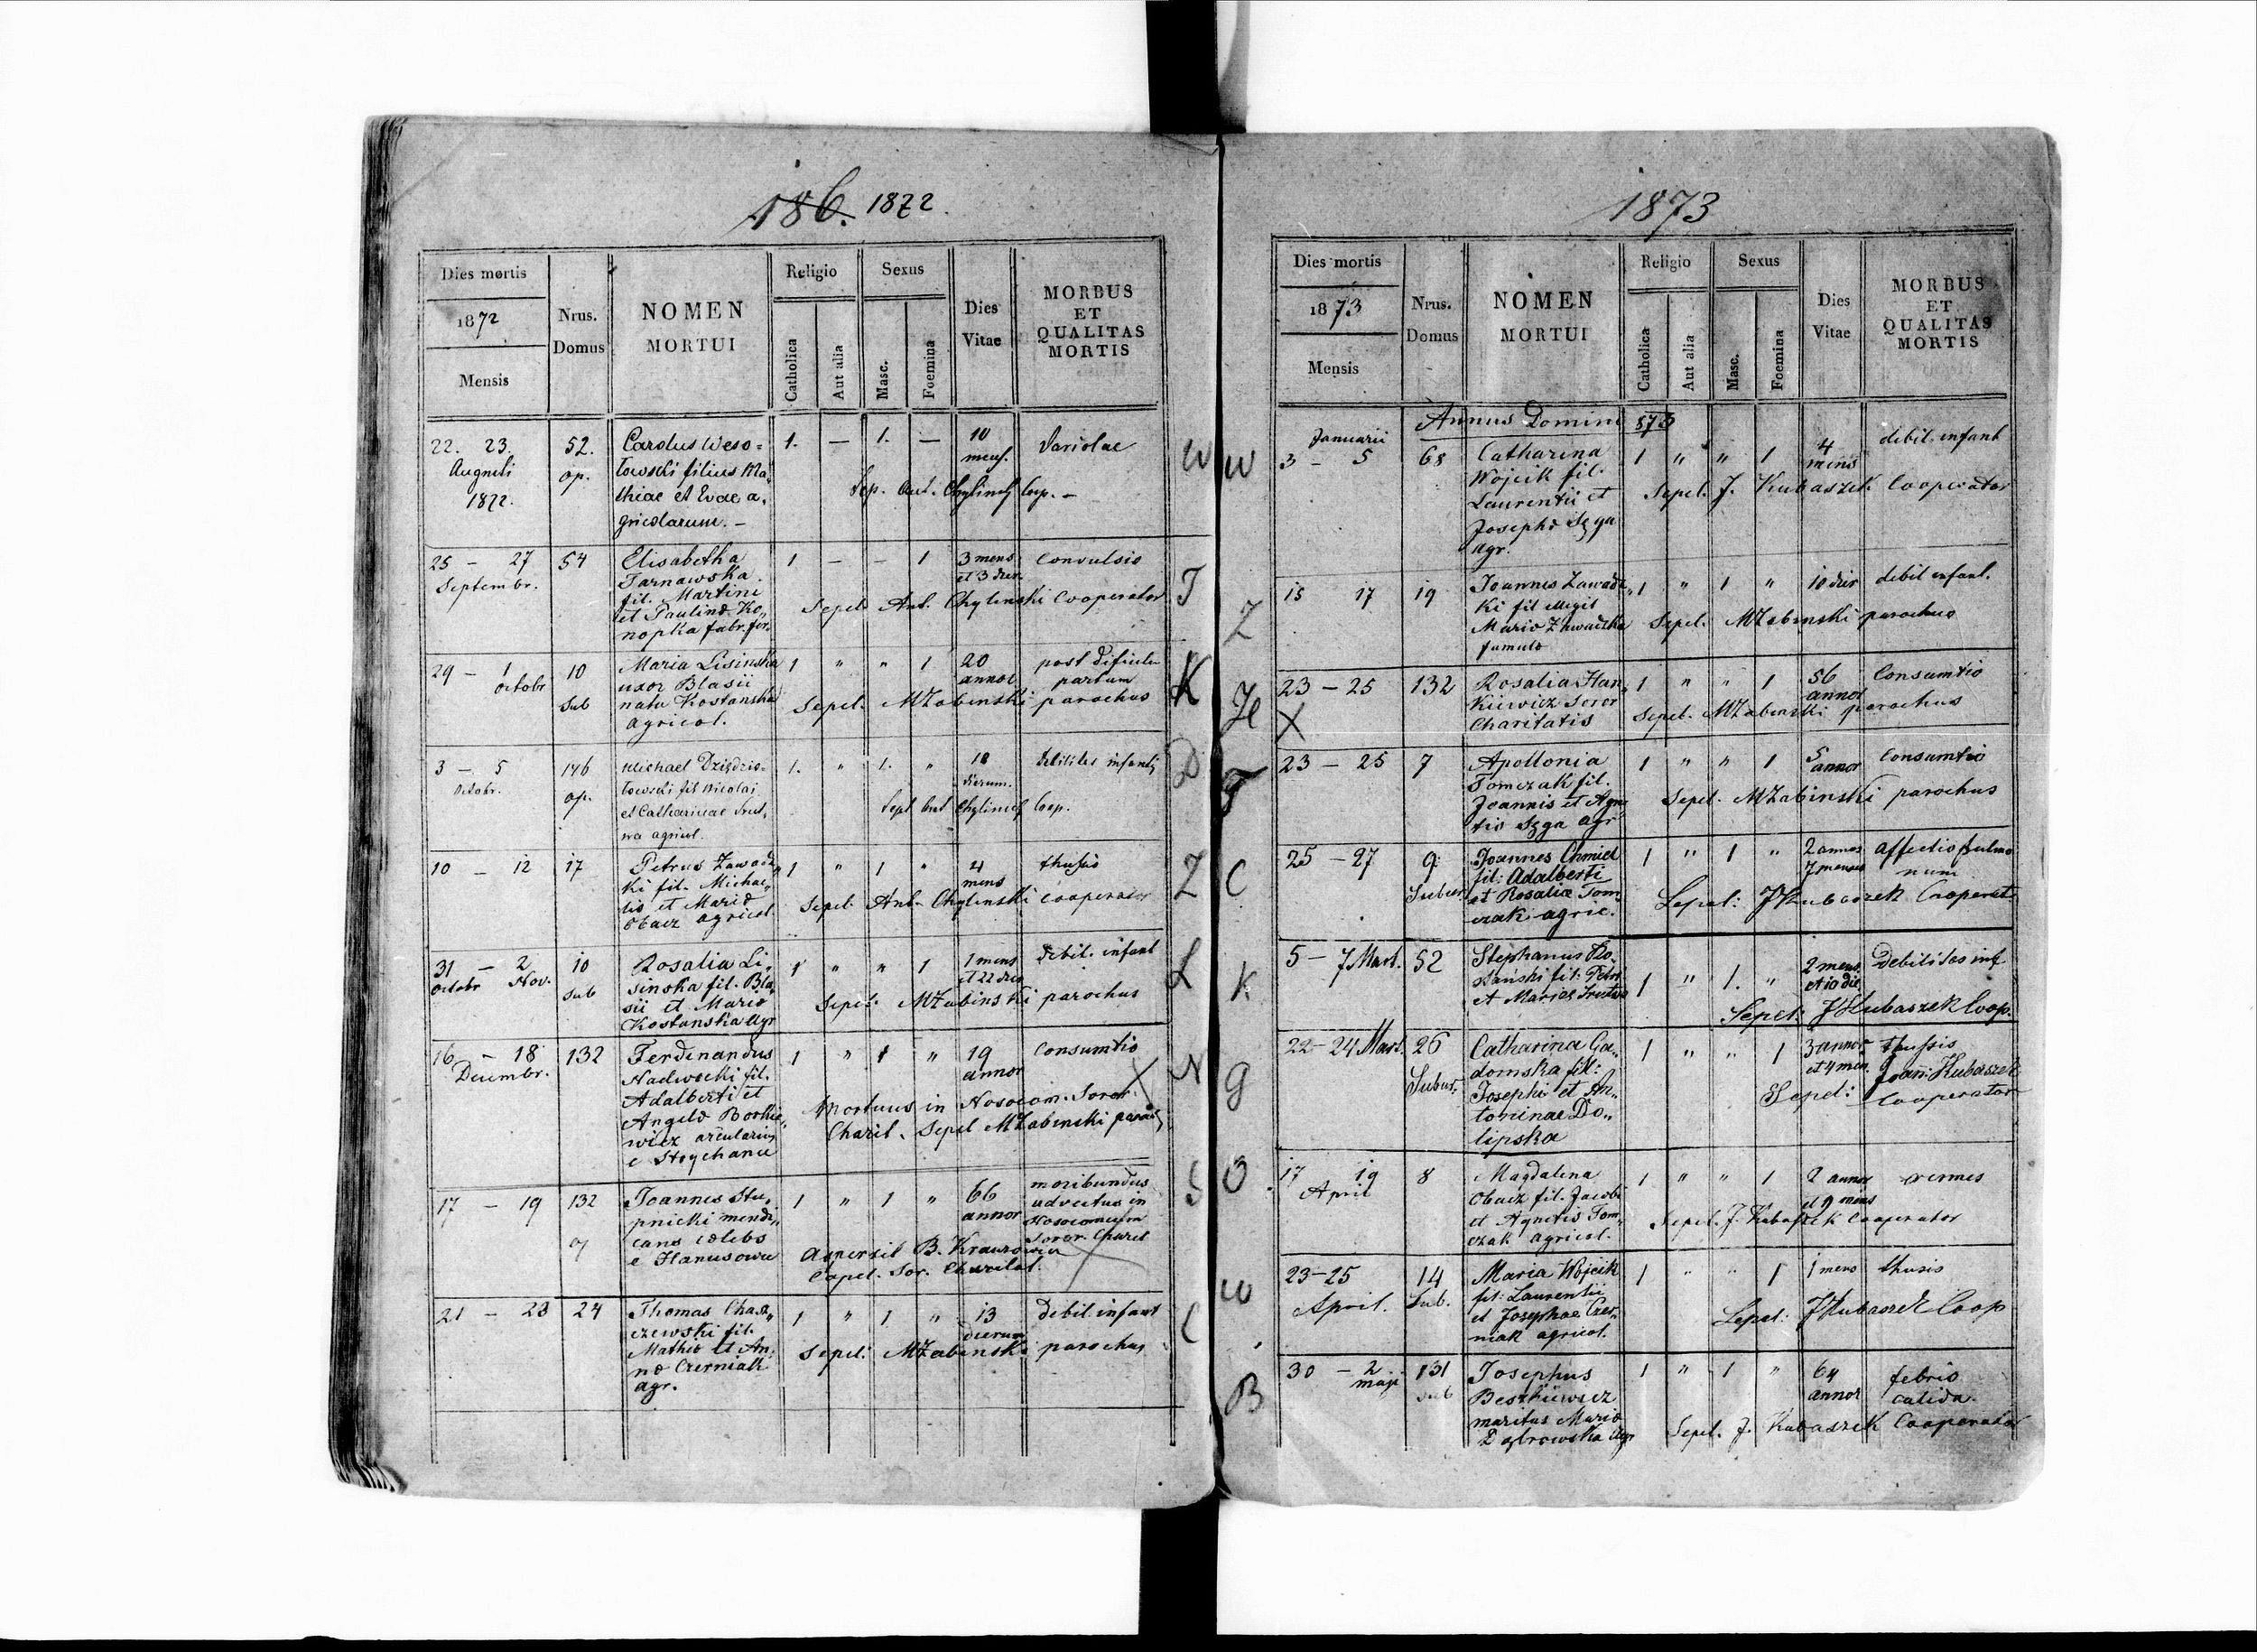 186. 1872.
Dies mortis
1872
Mensis
Nrus.
Domus
NOMEN
MORTUI
Religio
Catholica
Aut alia
Sexus
Masc.
Foemina
Dies
Vitae
MORBUS
ET
QUALITAS
MORTIS
22. 23. 52. Carolus Weso= 1. — 1. — 10 Variolae
Augusti op. łowski filius Ma= mens.
1872. thiae et Evae a, Sep. Ant. Chylinsk Coop. –
gricolarum. –
W
25 – 27 54 Elisabetha 1 – – 1 3 mens Convulsio
Septembr. Tarnawska et 3 dier.
fil. Martini Sepel. Ant. Chylenski Cooperator
et Paulinæ Ko„
nopka fabr. fer.
T
29 – 1 10 Maria Lisinska 1 " " 1 20 post dificile
octobr sub uxor Blasii annor partum
nata Kostanska Sepel. MZabinski parochus
agricol.
K
3 – 5 146 Michael 1. " 1. " 18 Debilitas infantis
Octobr. op. łowski fil Nicolai dierum.
et Catharinae Sepel Ant Chylinsk Coop.
agricol.
D
10 – 12 17 Petrus Zawadz„ 1 " 1 " 4 thusis
ki fil. Michae„ mens
lis et Mariæ Sepel. Ant. Chylenski cooperator
Obacz agricol.
Z
31 – 2 10 Rosalia Li„ 1 " " 1 1 mens debil. infant
octobr Nov. sub sinska fil. Bla„ et 22 dier
sii et Mariæ Sepel: MZabinski parochus
Kostanska agr
L
16 – 18 132 Ferdinandus 1 " 1 " 19 Consumtio
Decembr. fil. annor
Adalberti et Mortuus in Nosocom. Soror.
Angelæ Borkie„ Charit. Sepel MZabinski paroch
wicz arcularius
e Strychance
N
17 – 19 132 Joannes Stu„ 1 " 1 " 66 moribundus
pnicki mendi„ annor advectus in
cans cœlebs Nosocomium
e Hanusowce Soror. Charit
Aspersit B.
Capel. Sor. Charitat.
S
21 – 23 24 Thomas Chasz„ 1 " 1 " 13 Debil. infant
czewski fil. dierum
Mathæ et An„ Sepel: MZabinski parochus
næ Czerniak
agr.
C
1873
Dies mortis
1873
Mensis
Nrus.
Domus
NOMEN
MORTUI
Religio
Catholica
Aut alia
Sexus
Masc.
Foemina
Dies
Vitae
MORBUS
ET
QUALITAS
MORTIS
Annus Domini 873
W
Januarii
3 – 5 68 Catharina 1 " " 1 4 debil. infant
Wojcik fil. mens
Laurentii et Sepel. J. Kubaszek Cooperator
Josephæ Szga
agr.
Z
15 17 19 Joannes Zawadz„ 1 " 1 " 10 dier debil infant.
ki fil illegit
Mariæ Zawadzka Sepel. MZabinski parochus
famulæ
H
23 – 25 132 Rosalia Han„ 1 " " 1 56 Consumtio
X kiewicz Soror annor
Charitatis Sepel. MZabinski parochus
T
23 – 25 7 Apollonia 1 " " 1 5 Consumtio
Tomczak fil. annor
Joannis et Agne Sepel. MZabinski parochus
tis Szga agr
C
25 – 27 9. Joannes Chmiel 1 " 1 " 2 annor Affectio pulmo
Subur. fil: Adalberti 7 menses num
et Rosaliæ Tom„ Sepel: JKubaszek Cooperat.
czak agric.
K
5 – 7 Mart. 52 Stephanus Ko„ 1 " 1. " 2 mens. Debilitas inf
fil: Petri et 10 die
et Mariæ Sepel: JKubaszek Coop.
G
22–24 Mart. 26 Catharina Ga„ 1 " " 1 3 annor. thussis
Subur. domska fil: et 4 men.
Josephi et An„ Sepel: Joan: Kubaszek
toninae Do„ Cooperator
lipska
O
17 19 8 Magdalena 1 " " 1 2 annor vermes
April Obacz fil. Jacobi et 9 mens
et Agnetis Tom„ Sepel. J. Kubaszek Cooperator
czak agricol.
W
23–25 14 Maria Wojcik 1 " " 1 1 mens thusis
April. Sub. fil: Laurentii
et Josephae Czer„ Sepel: JKubaszek Coop
niak agricol.
B
30 – 2 131 Josephus 1 " 1 " 64 febris
maji sub Beszkiewicz annor calida.
maritus Mariæ Sepel. J. Kubaszek Cooperator
Dąbrowska agr